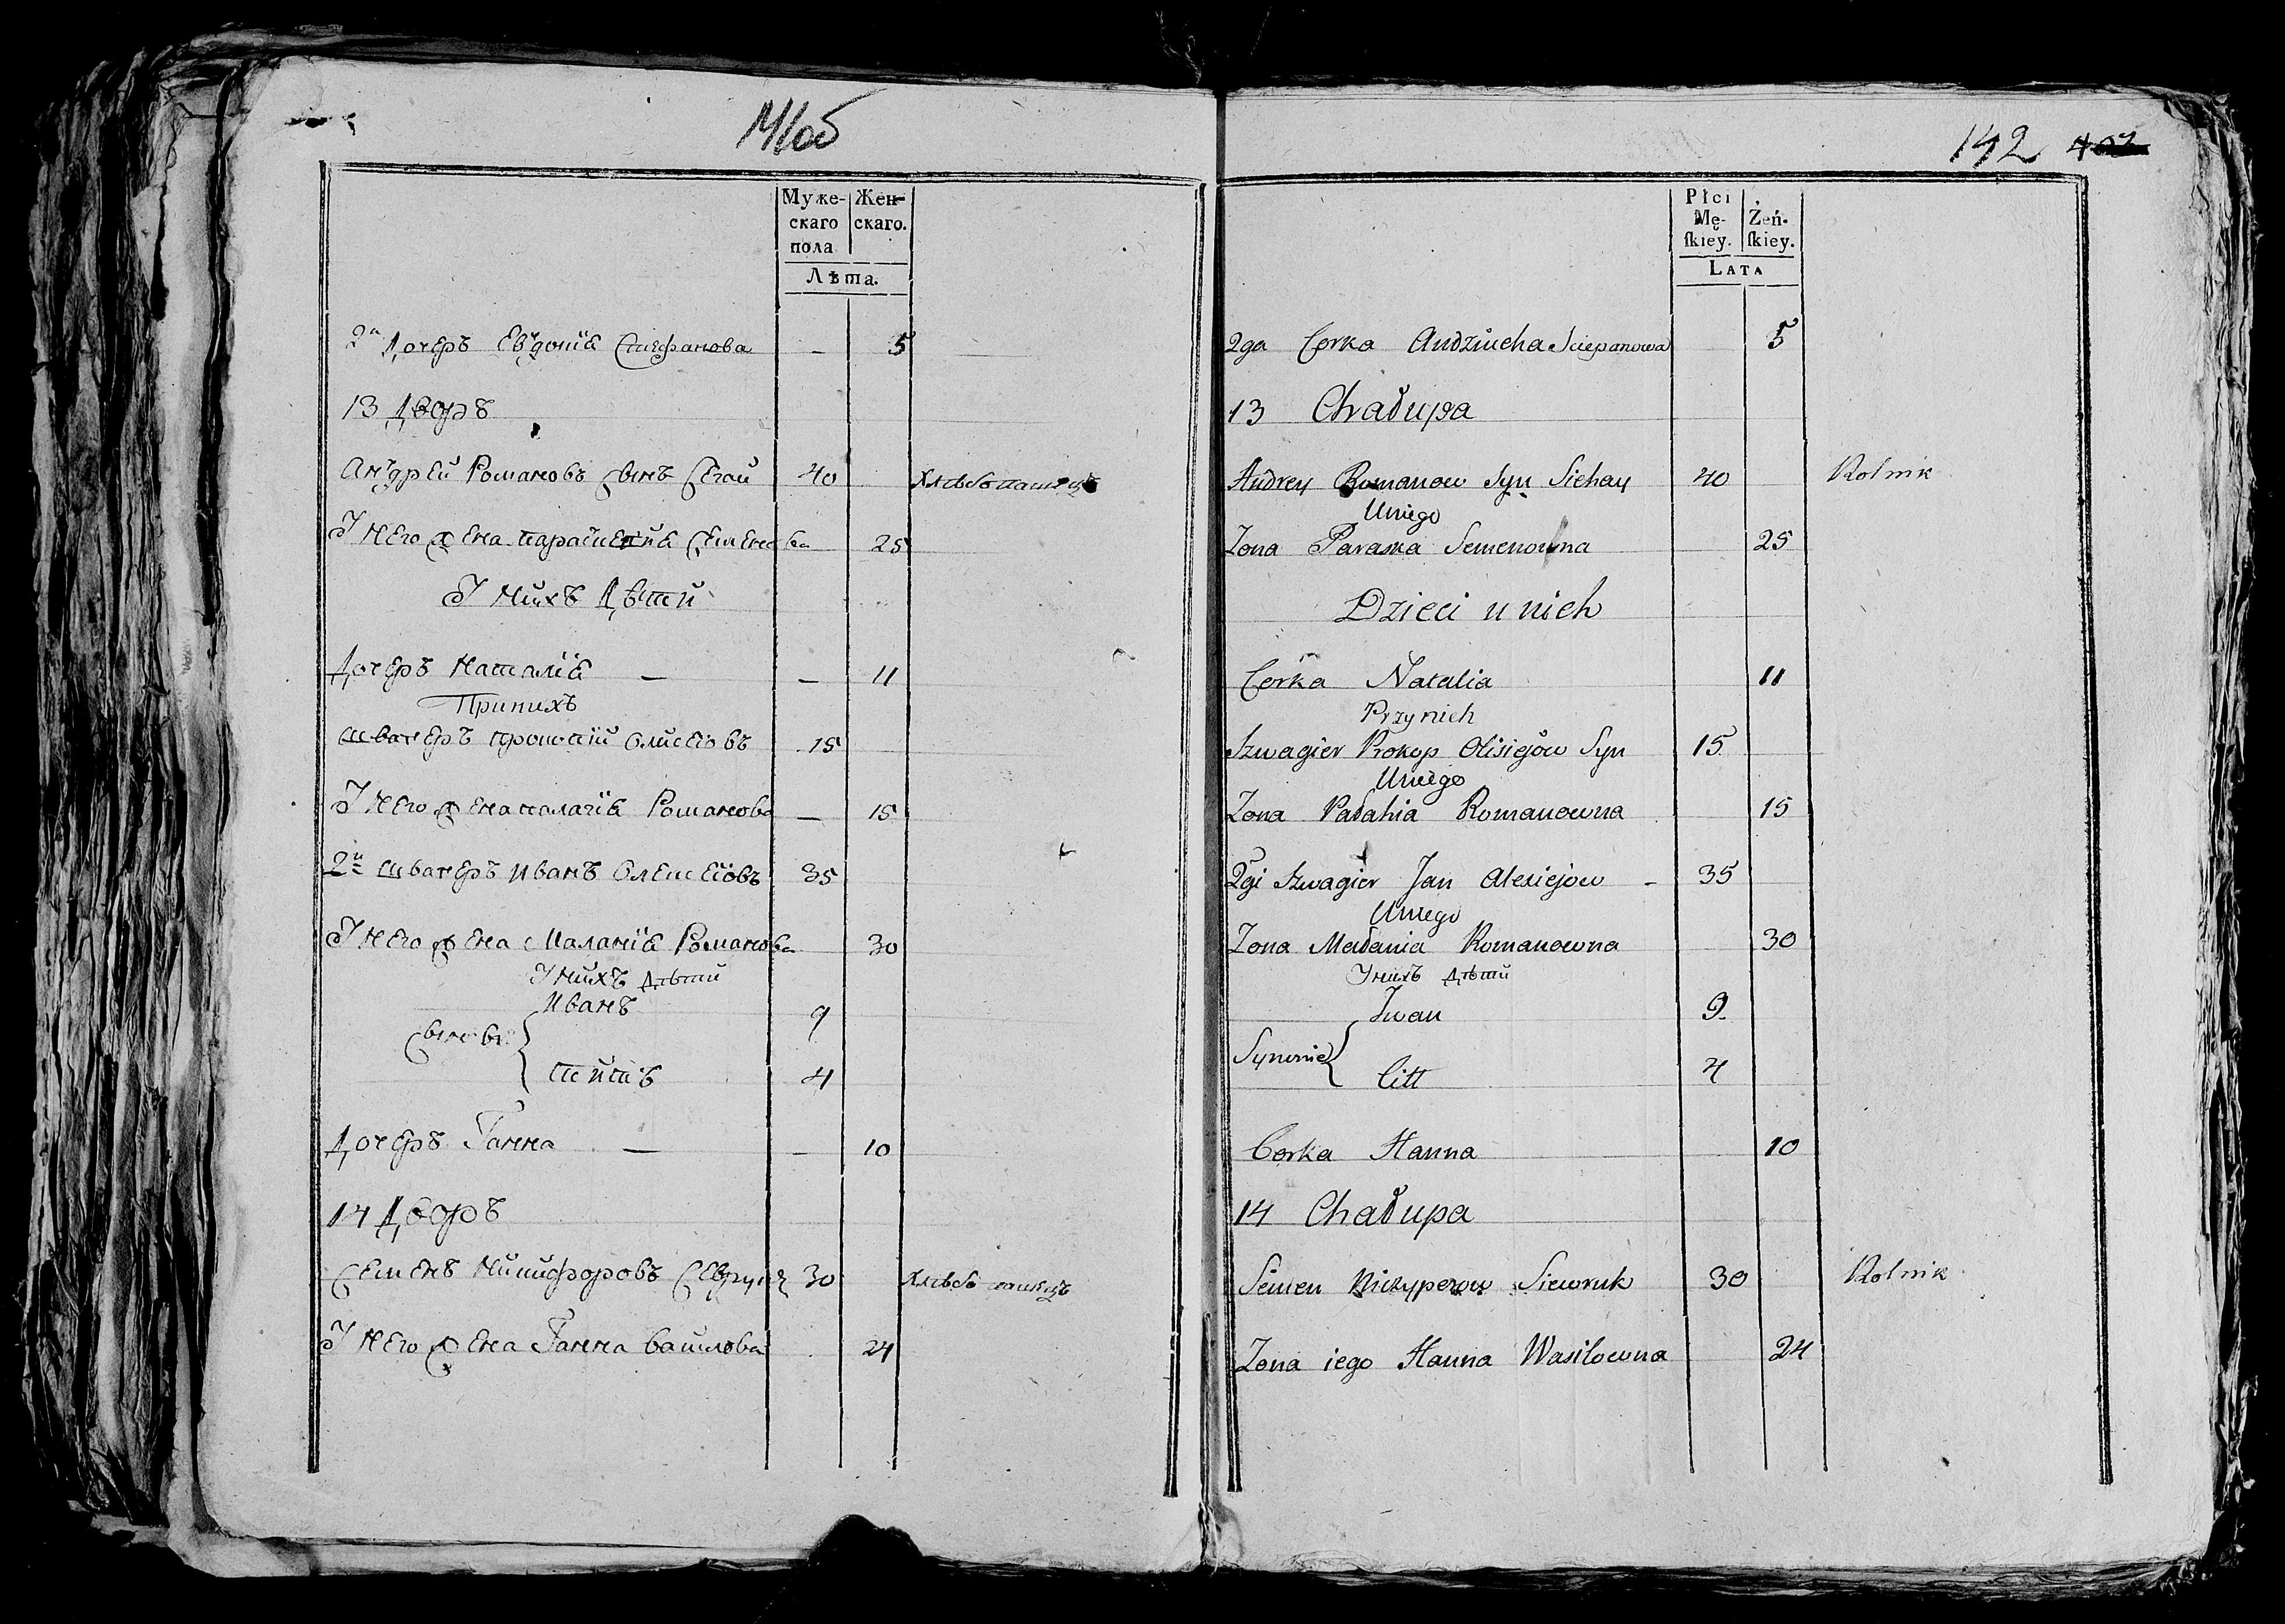 142 402
Муже- Жен-
скаго скаго.
пола
Лѣта.
2я Дочеръ Евдокія Стефанова — 5
13 Дворъ
Андрей Романовъ Сынъ Сегай 40 Хлѣбопашецъ
У него Жена Параскевія Семенова 25
У нихъ Дѣти
Дочеръ Наталія — — 11
При нихъ
Швагеръ Прокопій Олисіовъ 15
У него Жена Палагія Романова — 15
2й Швагеръ Иванъ Олексіовъ 35
У него Жена Маланія Романова 30
У нихъ Дѣти
Иванъ 9
Сынови
Титъ 4
Дочеръ Ганна — — 10
14 Дворъ
Семенъ Никифоровъ Севрукъ 30 Хлѣбопашецъ
У него Жена Ганна Василова 24
Płci
Mę- Żeń-
ſkiey. ſkiey.
LATA
2ga Corka Andziucha Sciepanowa 5
13 Chałupa
Andrey Romanow Syn Siehay 40 Rolnik
U niego
Zona Paraska Semenowna 25
Dzieci u nich
Córka Natalia 11
Przy nich
Szwagier Prokop Olisiejów Syn 15
U niego
Zona Pałahia Romanowna 15
2gi Szwagier Jan Alexiejow - 35
U niego
Zona Małania Romanowna 30
У нихъ Дѣти
Iwan 9
Synowie
Citt 4
Corka Hanna 10
14 Chałupa
Semen Nickyperow Siewruk 30 Rolnik
Zona iego Hanna Wasilowna 24